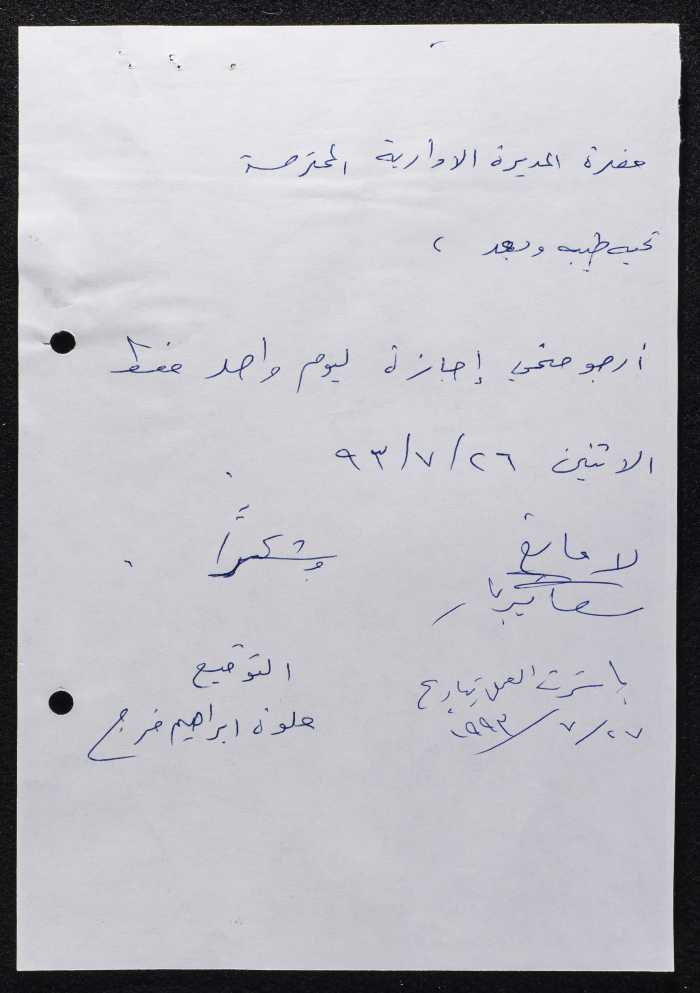 حضرة المديرة الادارية المحترمة
تحيه طيبه وبعد ،
أرجو منحي إجازة ليوم واحد فقط
الاثنين ٢٦/٧/٩٣
وشكراً
لا مانع
التوقيع
حلوة ابراهيم فرج
باشرت العمل بتاريخ
٢٧/٧/١٩٩٣